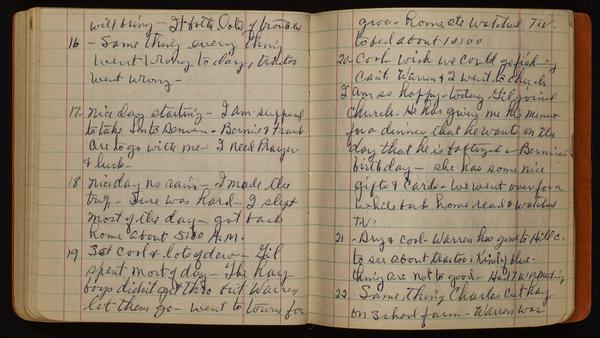 will bring - It  lots of troubles
16 - Same thing every thing
went wrong today, tractor
went wrong -
17 nice day starting - I am suppose
to take  to Denver - Bernie & Frank
are to go with me - I need Prayer
& luck -
18 nice day no rain - I made the
trip - Sure was hard - I slept
most of the day - got back
home about 5:00 A.M.
19 Sat cool & lots of dew - Gil
spent most of day - The hay
boys didn't get thro but Warren
let them go - went to town for
groc - home ate watched T.V.
to bed about 10:00
20 - Cool - wish we could go fishing
can't Warren & I went to church
I am so happy - today Gil joined
church. He has given me his menu
for a dinner that he wants on the
day that he is baptized - Bernie's
birthday - she has some nice
gifts & cards - we went over for a
while but home read & watched
TV -
21 - Dry & cool - Warren has gone to Hill C.
to see about tractor & Kinda blue -
thing are not to good -
22 Same thing Charles cut hay
on School farm - Warren was